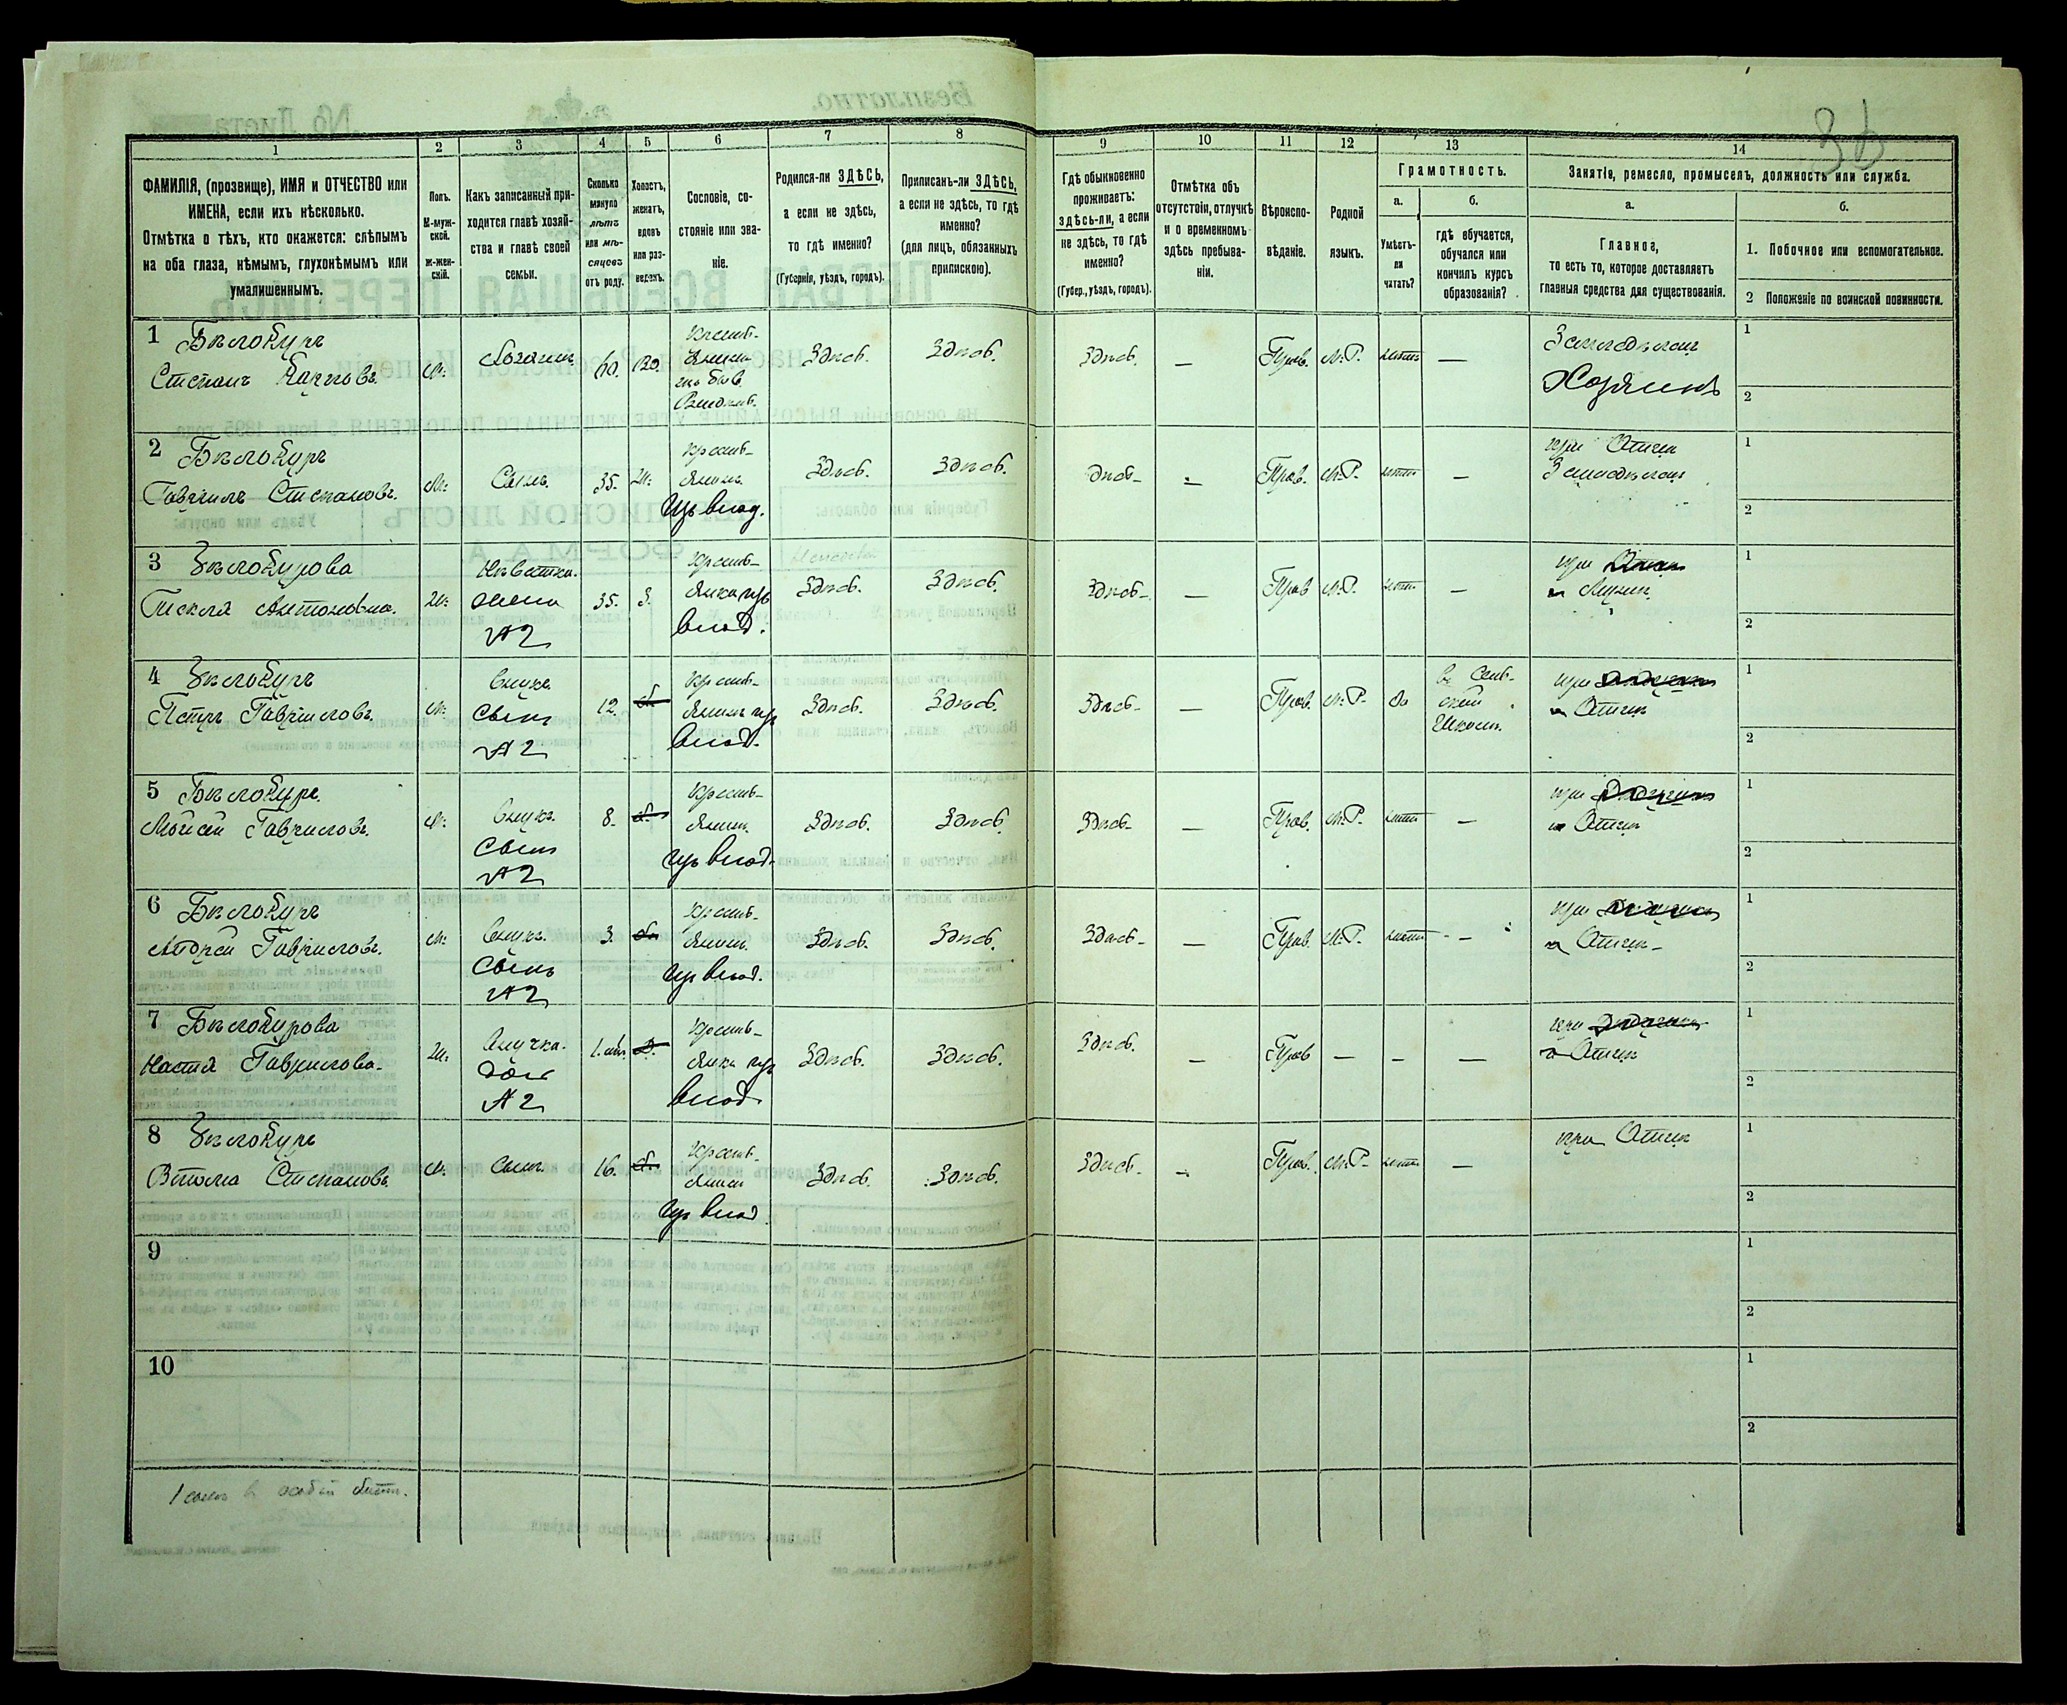 36
1
2
3
4
5
6
7
8
9
10
11
12
13
14
ФАМИЛІЯ, (прозвище), ИМЯ и ОТЧЕСТВО или
ИМЕНА, если ихъ нѣсколько.
Отмѣтка о тѣхъ, кто окажется: слѣпымъ
на оба глаза, нѣмымъ, глухонѣмымъ или
умалишеннымъ.
Полъ.
М-муж-
ской.
Ж-жен-
скій.
Какъ записанный при-
ходится главѣ хозяй-
ства и главѣ своей
семьи.
Сколько
минуло
лѣтъ
или мѣ-
сяцевъ
отъ роду.
Холостъ,
женатъ,
вдовъ
или раз-
веденъ.
Сословіе, со-
стояніе или зва-
ніе.
Родился-ли ЗДѢСЬ,
а если не здѣсь,
то гдѣ именно?
(Губернія, уѣздъ, городъ).
Приписанъ-ли ЗДѢСЬ,
а если не здѣсь, то гдѣ
именно?
(для лицъ, обязанныхъ
припискою).
Гдѣ обыкновенно
проживаетъ:
здѣсь-ли, а если
не здѣсь, то гдѣ
именно?
(Губер., уѣздъ, городъ).
Отмѣтка объ
отсутствіи, отлучкѣ
и о временномъ
здѣсь пребыва-
ніи.
Вѣроиспо-
вѣданіе.
Родной
языкъ.
Грамотность.
а.
Умѣетъ-
ли
читать?
б.
гдѣ обучается,
обучался или
кончилъ курсъ
образованія?
Занятіе, ремесло, промыселъ, должность или служба.
а.
Главное,
то есть то, которое доставляетъ
главныя средства для существованія.
б.
1. Побочное или вспомогательное.
2 Положеніе по воинской повинности.
1 Бѣлобуръ
Степанъ Карповъ.
м. Хозяинъ 60. вд.
Крест-
янинъ
изъ быв.
Владѣл.
Здѣсь. Здѣсь. Здѣсь. — Прав. М.Р. нѣтъ —
Земледѣлец
Хозяинъ
1
2
2 Бѣлобуръ
Гавріилъ Степановъ.
м. Сынъ. 35. ж.
Крест-
янинъ
изъ влад.
Здѣсь. Здѣсь. Здѣсь — Прав. М.Р. нѣтъ —
при Отцѣ
Земледѣлец
1
2
3 Бѣлобурова
Текля Антоновна.
ж.
Невѣстка.
жена
№2
35. З.
Крест-
янка изъ
влад.
Здѣсь. Здѣсь. Здѣсь — Прав М.Р. нѣтъ —
при Отцѣ
Мужѣ
1
2
4 Бѣлобуръ
Петръ Гавриловъ.
м.
Внукъ
сынъ
№2
12.
Крест-
янинъ изъ
влад.
Здѣсь. Здѣсь. Здѣсь — Прав. М.Р. да
въ Сель-
ской
Школѣ.
при
Отцѣ
1
2
5 Бѣлобуръ
Мойсей Гавриловъ.
м.
Внукъ.
сынъ
№2
8.
Крест-
янин.
изъ влад.
Здѣсь. Здѣсь. Здѣсь — Прав. М.Р. нѣтъ —
при
Отцѣ
1
2
6 Бѣлобуръ
Андрей Гавриловъ.
м.
Внукъ.
сынъ
№2
3.
Крест-
янин.
изъ влад.
Здѣсь. Здѣсь. Здѣсь — Прав. М.Р. нѣтъ —
при
Отцѣ
1
2
7 Бѣлобурова
Настя Гаврилова.
ж.
Внучка.
дочь
№2
1. мѣс.
Крест-
янка изъ
влад
Здѣсь. Здѣсь. Здѣсь. — Прав — — —
при
Отцѣ
1
2
8 Бѣлобуръ
Степановъ.
м. сынъ. 16.
Крест-
янин
изъ влад
Здѣсь. Здѣсь. Здѣсь — Прав. М.Р. нѣтъ —
при Отцѣ
1
2
9
1
2
10
1
2
1 сынъ в особый листъ.